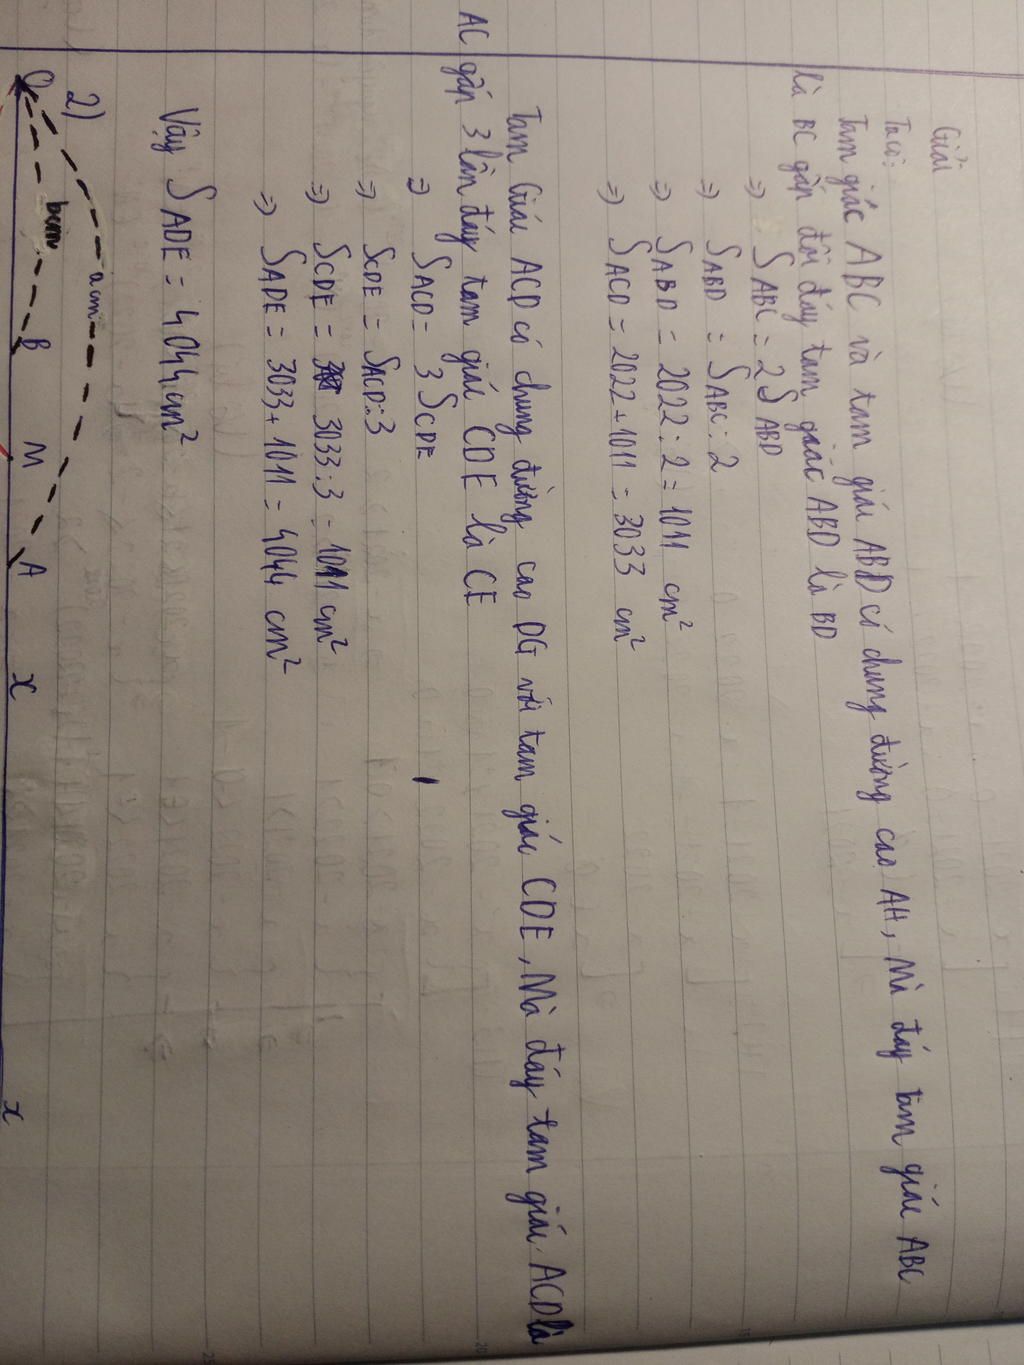 Giải
Ta có:
Tam giác ABC và tam giác ABD có chung đường cao AH, Mà đáy tam giác ABC
là BC gấp đôi đáy tam giác ABD là BD
=> SABC = 2SABD
=> SABD = SABC : 2
=> SABD = 2022 : 2 = 1011 cm²
=> SACD = 2022 + 1011 = 3033 cm²
Tam Giác ACD có chung đường cao DG với tam giác CDE, Mà đáy tam giác ACD là
AC gấp 3 lần đáy tam giác CDE là CE
=> SACD = 3 SCDE
=> SCDE = SACD:3
=> SCDE = 3033:3 = 1011 cm²
=> SADE = 3033 + 1011 = 4044 cm²
Vậy SADE = 4044 cm²
2)
a cm
bcm
O B M A x x